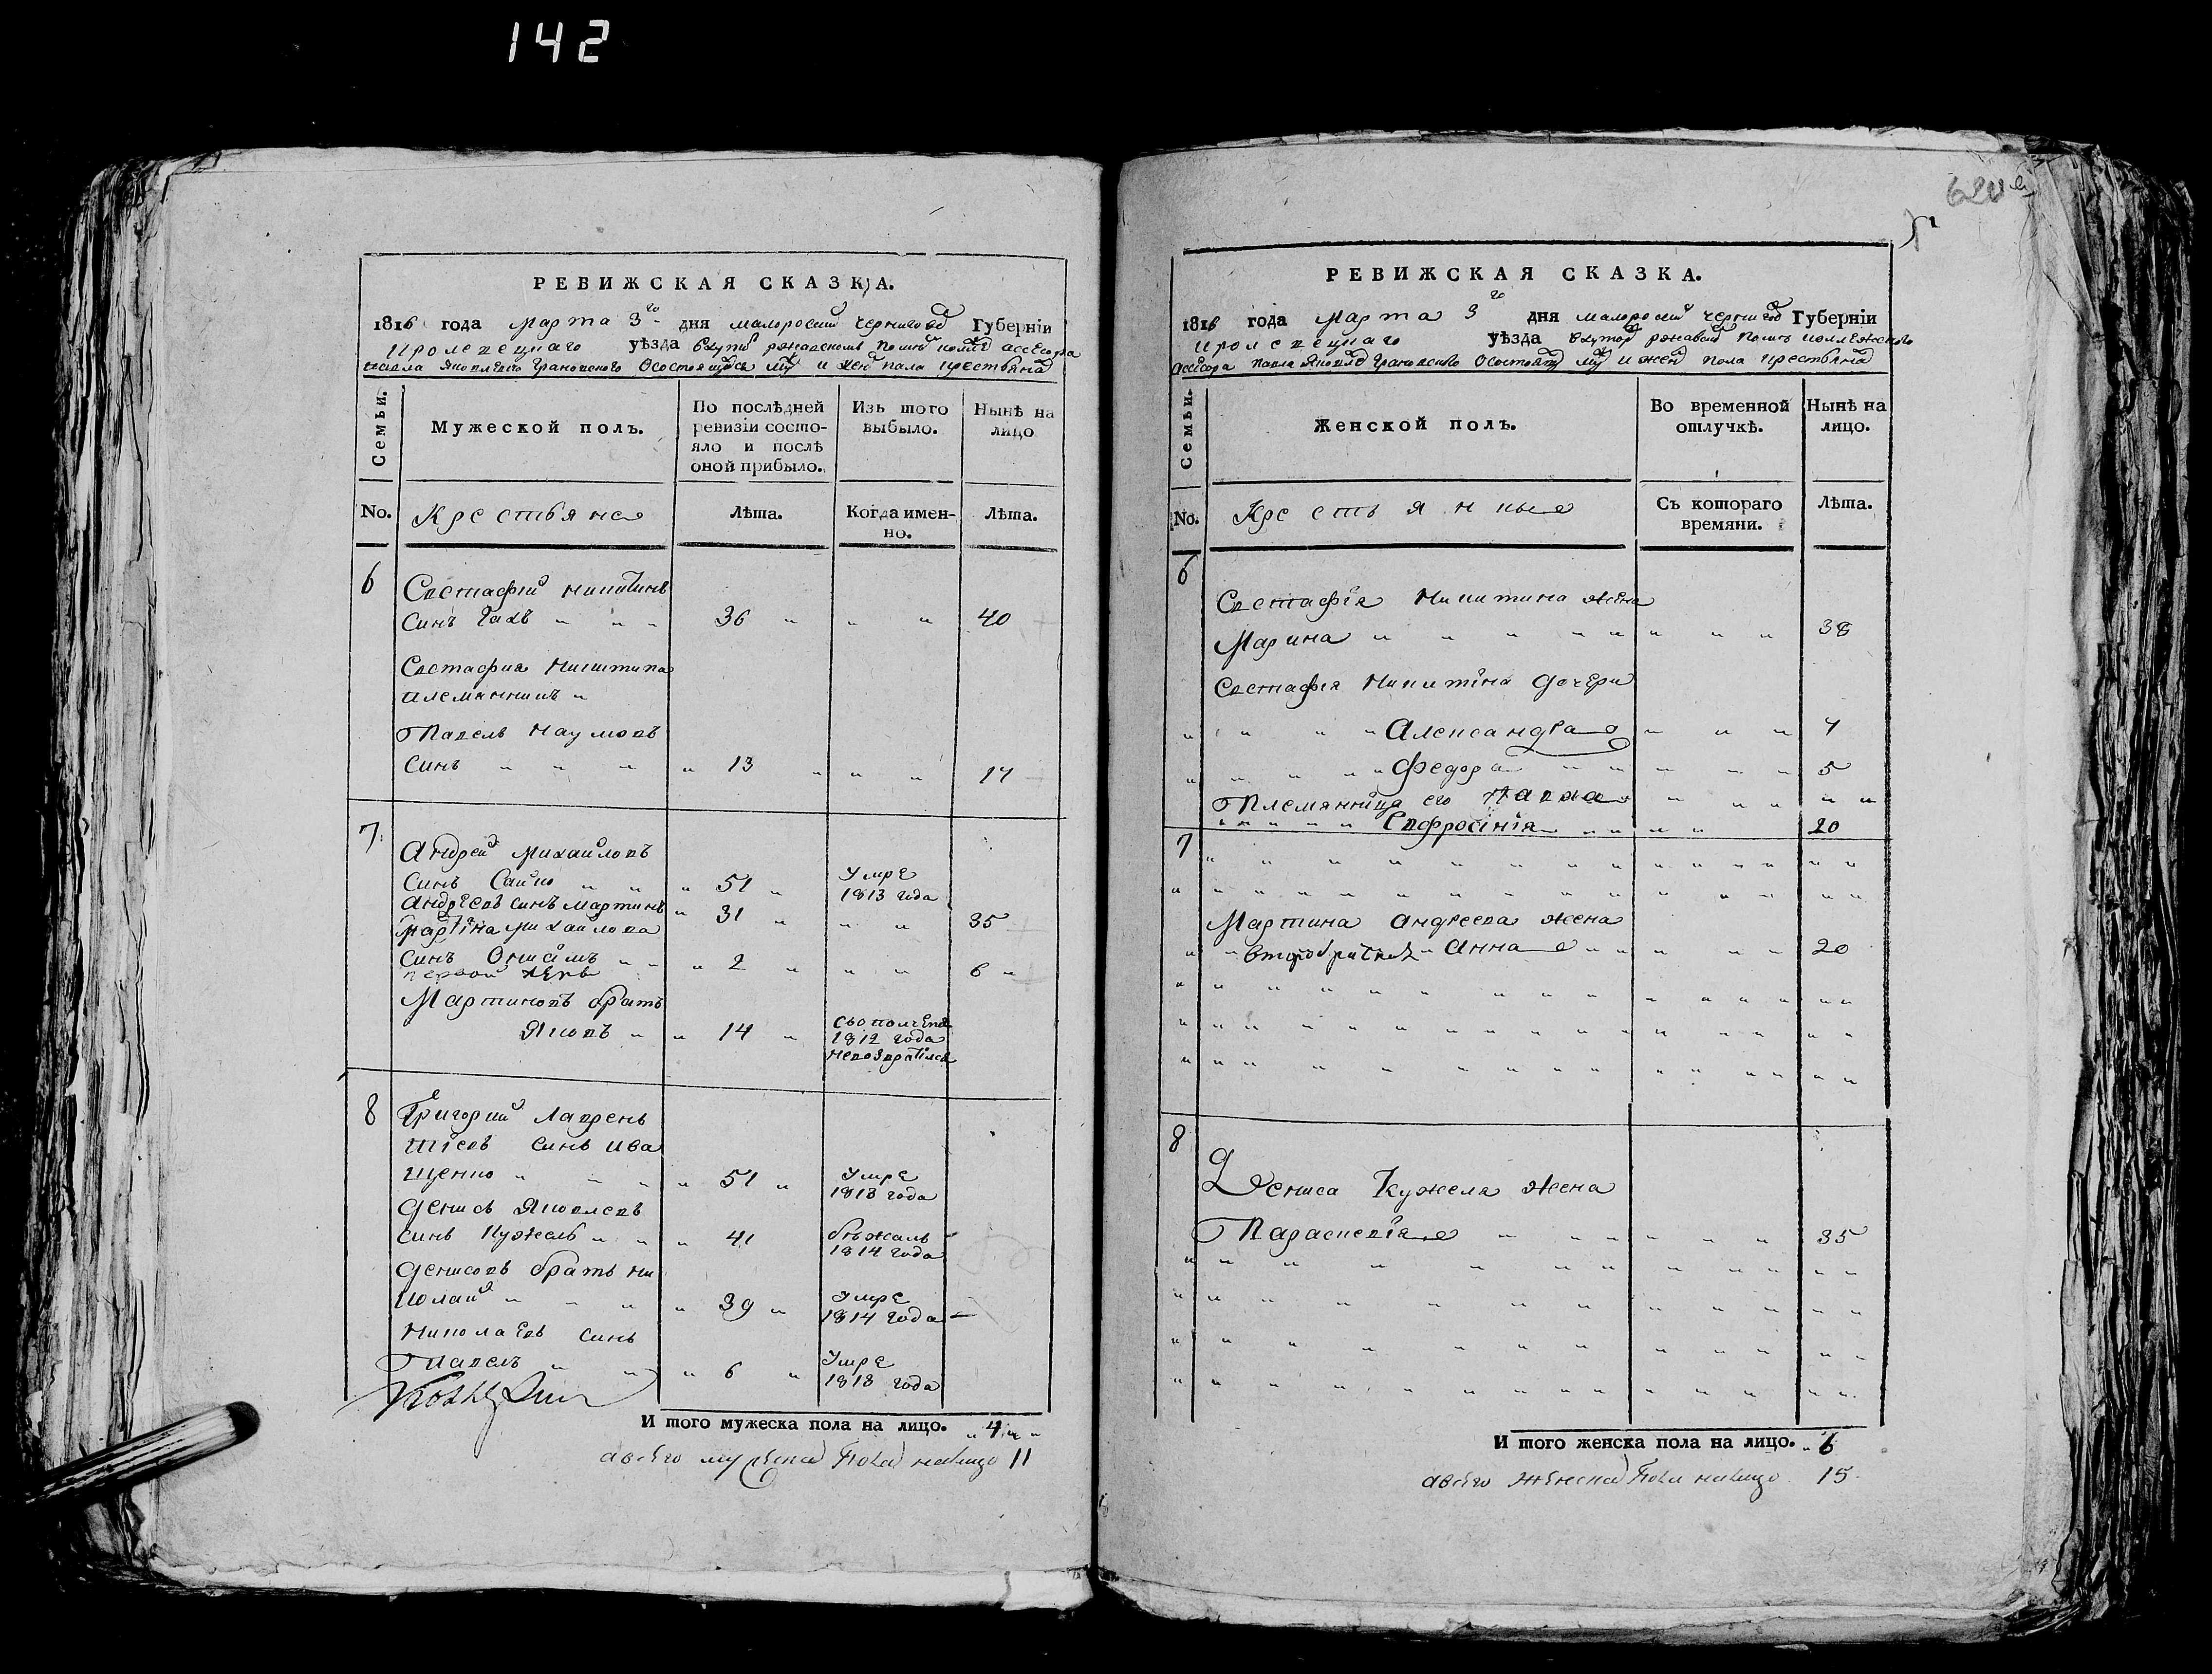 142
РЕВИЖСКАЯ СКАЗКА.
1816 года Марта 3го дня малоросий чернигов Губернїи
кролевецкаго уѣзда
Павла Яковлева Грановского Состоящихъ муж и жен пола крестьянъ
Семьи.
Мужеской полъ.
По послѣдней ревизїи состояло и послѣ оной прибыло.
Изъ того выбыло.
Нынѣ на лицо
No.
Крестьяне
Лѣта.
Когда именно.
Лѣта.
6
Евстафий никитинъ
синъ Гахъ " " " 36 " " " 40
Евстафия Никитина
племянникъ "
Павелъ Наумовъ
синъ " " " " 13 " " " 17
7
Андрей михайловъ
синъ Сайко " " " 51 " Умре 1813 года
андреевъ синъ мартинъ " 31 " " " 35
мартина михайлова
синъ Онисимъ " " " 2 " " " 6 "
первой жены
Мартиновъ братъ
Яковъ " " 14 " 1812 года невозвратился
8
Григорий Лаврен
тиевъ синъ ива
щенко " " " " 51 " Умре 1813 года
денисъ Яковлевъ
синъ Кужель " " " 41 бѣжалъ 1814 года
денисовъ братъ ни
колай " " " " 39 " Умре 1814 года
Николаевъ синъ
Павелъ " " " 6 " Умре 1813 года
И того мужеска пола на лицо. " 4 "
авсего мужеска Пола налицо 11
РЕВИЖСКАЯ СКАЗКА.
1816 года Марта 3го дня малоросий чернигов Губернїи
кролевецкаго уѣзда
асесора Павла Яковлев Грановского Состоящих муж и жен пола крестьянъ
Семьи.
Женской полъ.
Во временной отлучкѣ.
Нынѣ на лицо.
No.
Крестьянкие
Съ котораго времяни.
Лѣта.
6
Евстафїя Никитина жена
Марина " " " " " " " " 38
Евстафия Никитина дочери
" " " " Александра " " " 7
" " " " " Федора " " " " " 5
Племянница его " " " " "
" " " " " Евфросинїя " " " " 20
7
Мартина андреева жена
" " Анна " " " " " 20
8
Дениса Кужеля жена
Параскевїя " " " " " " 35
И того женска пола на лицо. " 6
авсего женска Пола налицо 15